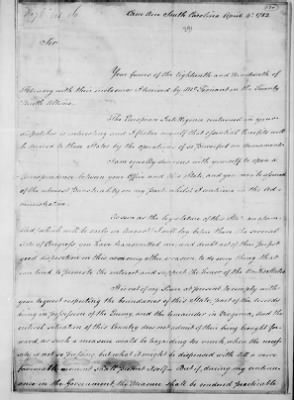 South Carolina April 4th 1782
Sir
Your favors of the Eighteenth and Nineteenth of
February with their enclosures I received by Mr. Ternant on the Twenty
The European Intelligence contained in your
dispatches is interesting and I flatter myself that of
be derived to these States by the operation of so Powerful an Armament
I am equally desirous with yourself to open a
Correspondence between your Office and this State, and you may be assured
of the utmost Punctuality on my part whilst I continue in the Ad
ministration
As soon as the legislature of this State
which will be early in August I will lay before them the several
Acts of Congress you have transmitted me, and doubt not of their perfect
good disposition on this as on every other occasion to do every thing that
can tend to promote the interest and support the honor of the United States
It is not in my Power at present to comply with
your request respecting the boundaries of this State, part of the records
being in possession of the Enemy, and the remainder in Virginia, and the
critical situation of this Country does not admit of their being brought for
ward, as such a measure would be hazarding too much when the
is not so pressing but what it might be dispensed with till a more
favorable moment shall present itself. But if, during my continu
ance in the Government, the Measure shall be rendered practicable